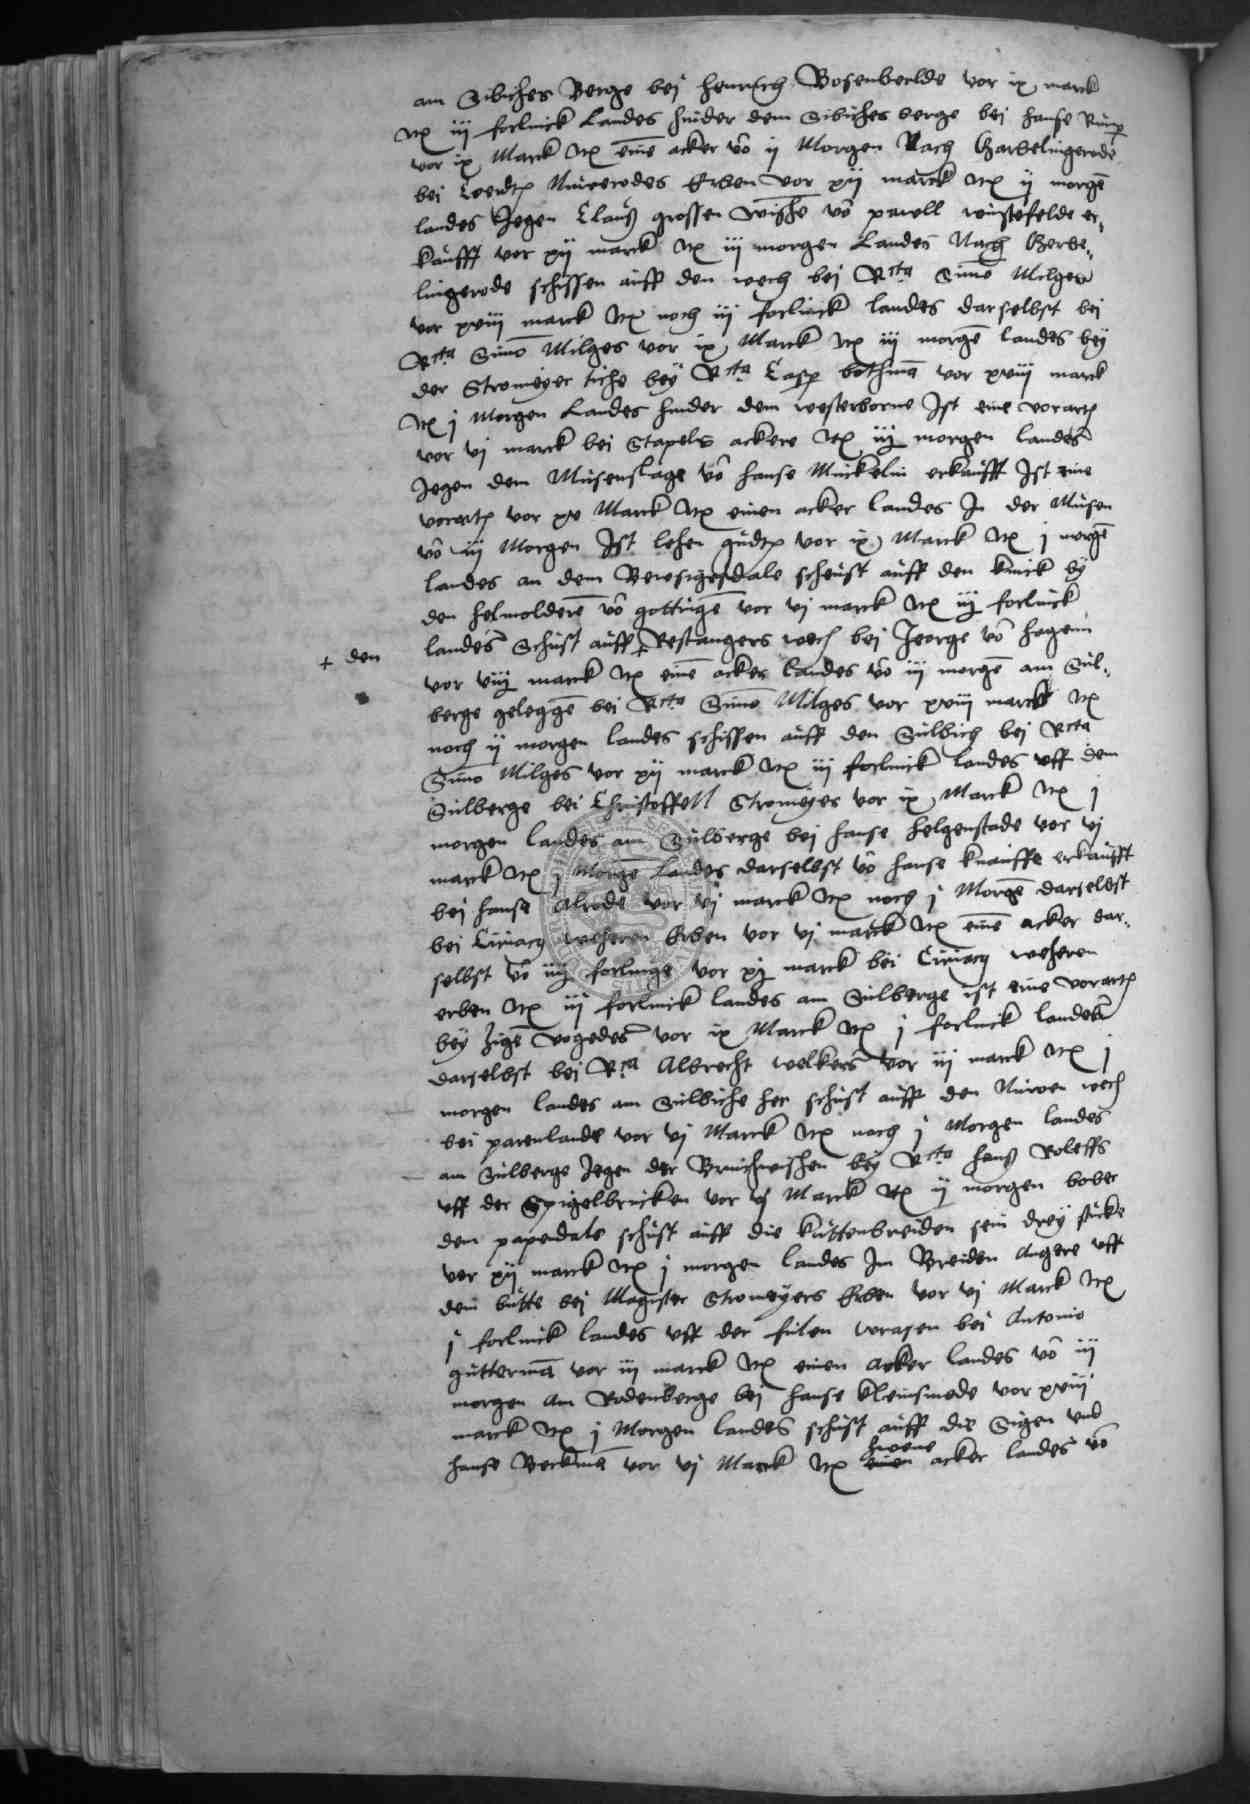 am Sibiches Berge bei Henrich Bosenbeelde vor ix marck
Itz iij forlinck Landes hinder dem Sibiches berge bei Hanse
vor ix Marck Itz eine acker vo ij Morgen Nach Garbelingerode
bei Cordtz Erben vor xij marck Itz ij morge
landes Jegen Clauß grossen wishe vo pawell wustefelde er„
kaufft vor xij marck Itz iij morgen Landes Nach Gerbe„
lingerode schissen auff den wech bei Rcta Simo Milges
vor xviij marck Itz noch iij forlinck landes darselbst bei
Rcta Simo Milges vor ix Marck Itz iij morge landes bey
der Stromeyer tiche bey Rcta Casp bothma vor xviij marck
Itz j Morgen Landes hinder dem westerborne Ist eine vorartz
vor vj marck bei Stapels ackere Itz iij morgen landes
Jegen dem Musenstige vo Hanse Munckelin erkaufft Ist eine
vorartz vor xv Marck Itz einen acker landes In der Musen
vo iij Morgen Ist lehen gudtz vor ix Marck Itz j morge
landes an dem scheust auff den knick by
den helmoldere vo gottinge vor vj marck Itz iij forlinck
+ den landes Schust auff + Restangers wech bei Jeorge vo Hagenn
vor viij marck Itz eine acker landes vo iij morge am Sul„
berge gelegge bei Rcta Simo Milges vor xviij marck Itz
noch ij morgen landes schissen auff den Sulbich bei Rcta
Simo Milges vor xij marck Itz iij forlinck landes uff dem
Sulberge bei Christoffell Stromeyer vor ix Marck Itz j
morgen landes am Sulberge bej Hanse Helgenstade vor vj
marck Itz j Morge Landes darselbst vo Hanse knauffe erkaufft
bej Hanse Alrode vor vj marck Itz noch j Morge darselbst
bei Ciriacy weheren Erben vor vj marck Itz eine acker dar„
selbst vo iiij forlinge vor xij marck bei Ciriacy weheren
erben Itz iij forlinck landes am Sulberge ist eine vorartz
bey vogedes vor ix Marck Itz j forlinck landes
darselbst bei Rcta Albrecht welkers vor iij marck Itz j
morgen landes am Sulbiche her schust auff den Nuwen wech
bei parenlande vor vj Marck Itz noch j Morgen landes
am Sulberge Jegen der Bruchwishen bey Rcta Hanß Roleffs
uff der Spigelbrucken vor vj Marck Itz ij morgen bober
dem papendale schust auff die kuttenbreiden sein drey stucke
vor xij marck Itz j morgen landes Im Breiden Angere uff
dem butte bei Magister Stromeyers Erben vor vj Marck Itz
j forlinck landes uff der fulen vorasen bei Antonio
gutterma vor iij marck Itz einen acker landes vo iij
morgen Am Rodenberge bej Hanse kleinsmede vor xviij
marck Itz j Morgen landes schust auff die Sigen und
Hanse Beckma vor vj Marck Itz zwene acker landes vo